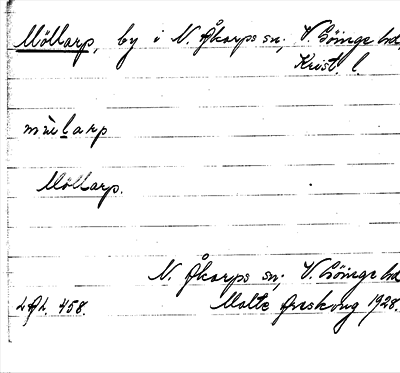 Möllarp, by i N. Åkarps sn; V. Göinge hd,
Krist. l.
mùlarp
Möllarp.
N. Åkarps sn; V. Göinge hd
L.A.L. 458. Malte Areskoug 1928.